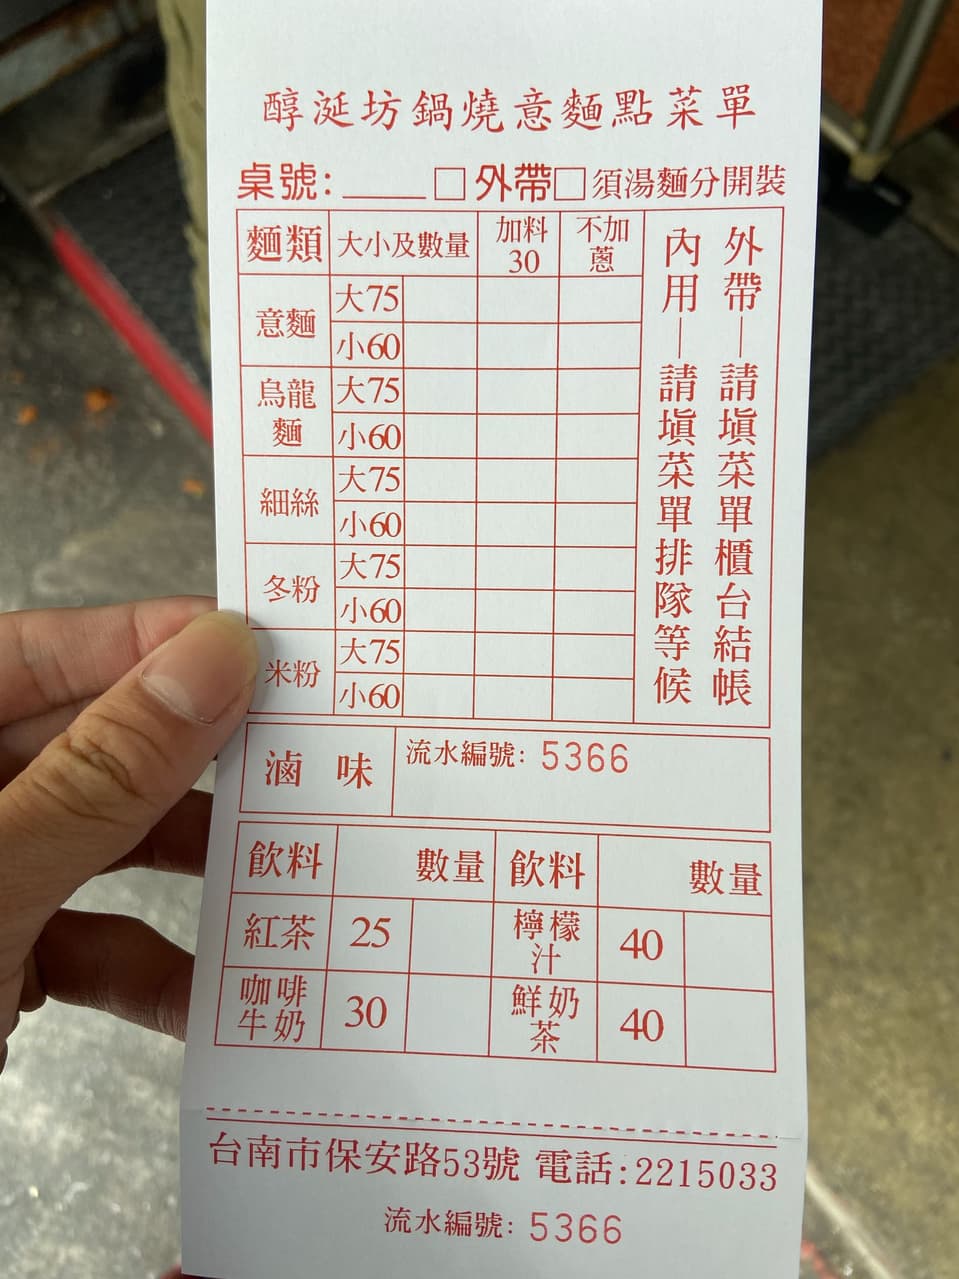 醇涎坊鍋燒意麵點菜單
桌號:____□外帶□須湯麵分開裝
麵類 大小及數量 加料30 不加蔥
意麵 大75
小60
烏龍麵 大75
小60
細絲 大75
小60
冬粉 大75
小60
米粉 大75
小60
外帶—請填菜單櫃台結帳
內用—請填菜單排隊等候
滷味 流水編號: 5366
飲料 數量 飲料 數量
紅茶 25 檸檬汁 40
咖啡牛奶 30 鮮奶茶 40
台南市保安路53號 電話:2215033
流水編號: 5366